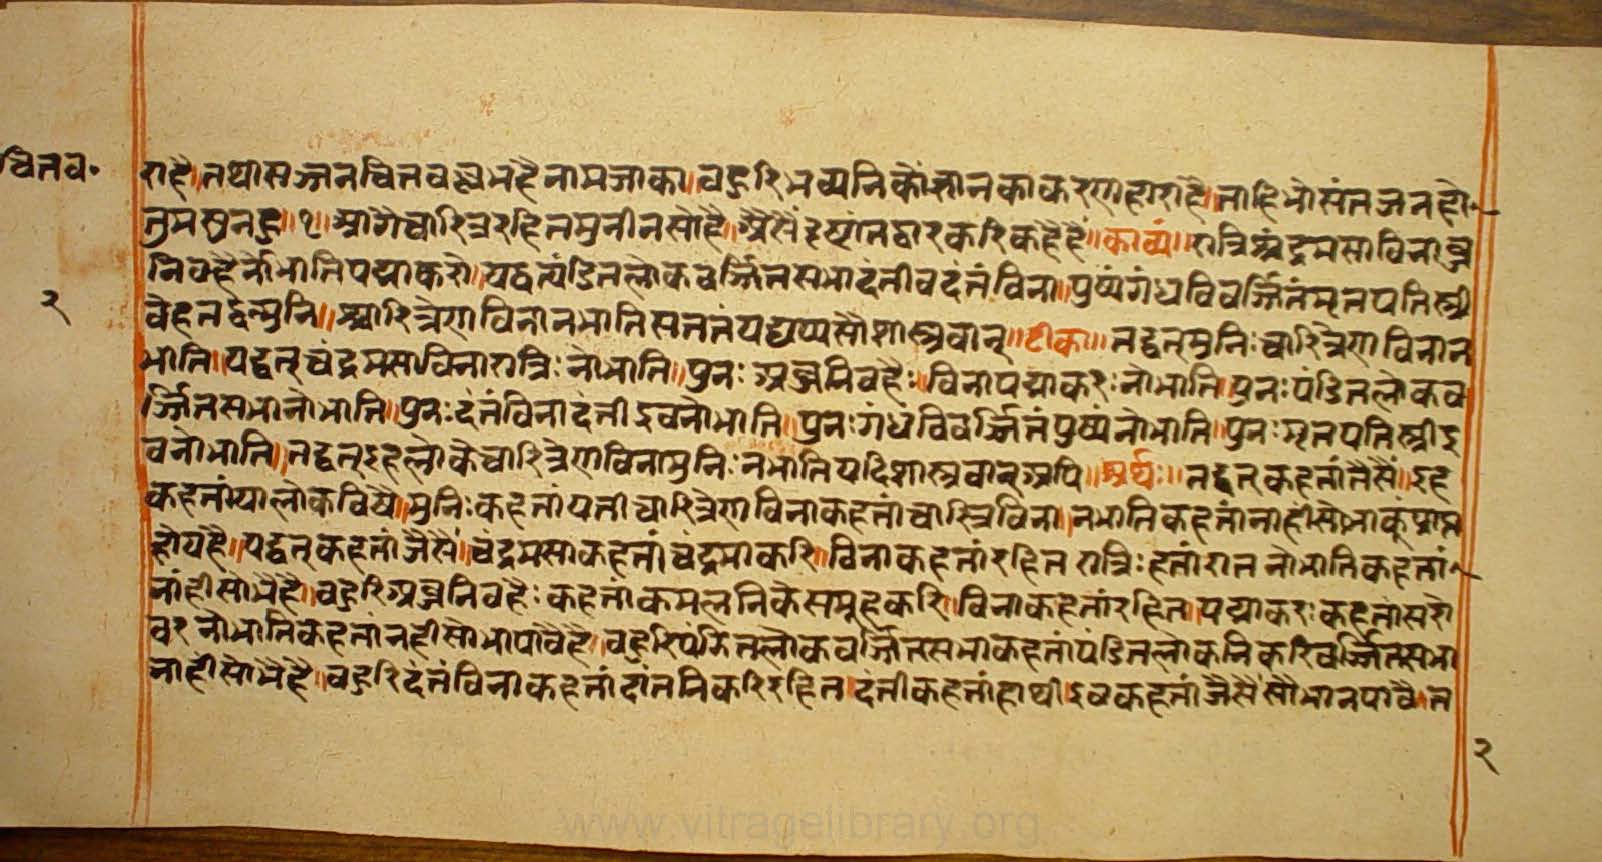 चित्तव॰
राहै॥तथासज्जनचित्तवल्लभहैनामजाका॥बहुरिभव्यनिकौंज्ञानकाकरणहाराहै॥ताहिभोसंतजनहो
तुमसुनहु॥१॥आगैचारित्ररहितमुनीनसोहै॥अैसैंदृष्टांतद्वारकरिकहैहैं॥काव्यं॥रात्रिश्चंद्रमसाविनाब्ज
निवहैर्नोभातिपद्माकरो॥यद्वत्पंडितलोकवर्ज्जितसभादंतीवदंतंविना॥पुष्पंगंधविवर्ज्जितंमृतपतिस्त्री
वेहतद्वन्मुनि॥श्चारित्रेणविनानभातिसततंयद्यप्यसौशास्त्रवान्॥टीका॥तद्वत्मुनिःचारित्रेणविनान
भाति॥यद्वत्चंद्रमसाविनारात्रिःनोभाति॥पुनःअब्जनिवहैः॥विनापद्माकरःनोभाति॥पुनःपंडितलोकव
र्ज्जितसभानोभाति॥पुनःदंतंविनादंतीइवनोभाति॥पुनःगंधंविवर्ज्जितंपुष्पंनोभाति॥पुनःमृतपतिस्त्रीइ
वनोभाति॥तद्वत्इहलोकेचारित्रेणविनामुनिःनभातियदिशास्त्रवान्अपि॥अर्थः॥तद्वत्कहतांतैसैं॥इह
कहतांयालोकविषै॥मुनिःकहतांयतीचारित्रेणविनाकहतांचारित्रविना॥नभातिकहतांनाहीसोभाकूंप्राप्त
होयहै॥यद्वत्कहतांजैसैं॥चंद्रमसाकहतांचंद्रमाकरि॥विनाकहतांरहितरात्रिःहतांरातनोभातिकहतां
नांहीसोभैहै॥बहुरिअब्जनिवहैःकहतांकमलनिकेसमुहकरि॥विनाकहतांरहित॥पद्माकरःकहतांसरो
वरनोभातिकहतांनहीसोभापावैहै॥बहुरिपंडितलोकवर्ज्जितसभाकहतांपंडितलोकनिकरिवर्ज्जितसभा
नाहीसोभैहै॥बहुरिदंतंविनाकहतांदांतनिकरिरहित॥दंतीकहतांहाथीइवकहतांजैसैंसोभानपावै॥त
२
२
www.vitragelibrary.org